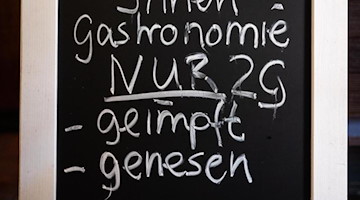 Innen -
Gastronomie
NUR 2G
- geimpft
- genesen